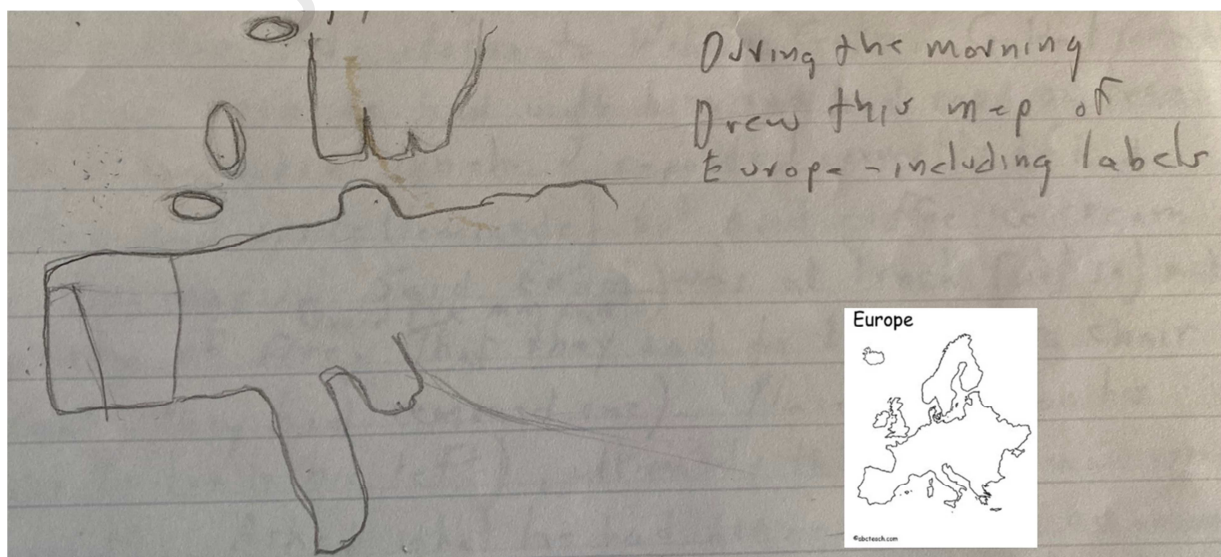 During the morning
Drew this map of
Europe - including labels
Europe
©abcteach.com